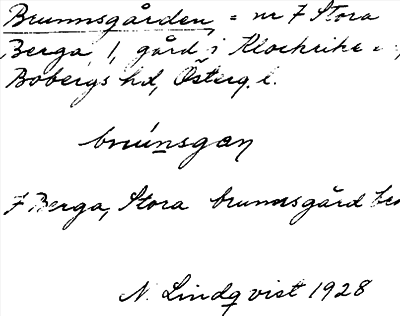 Brunnsgården, = nr 7 Stora
Berga, 1, gård i Klockrike
Bobergs hd, Österg. l.
brúnsgaṇ
7 Berga, Stora brunnsgård
N. Lindqvist 1928